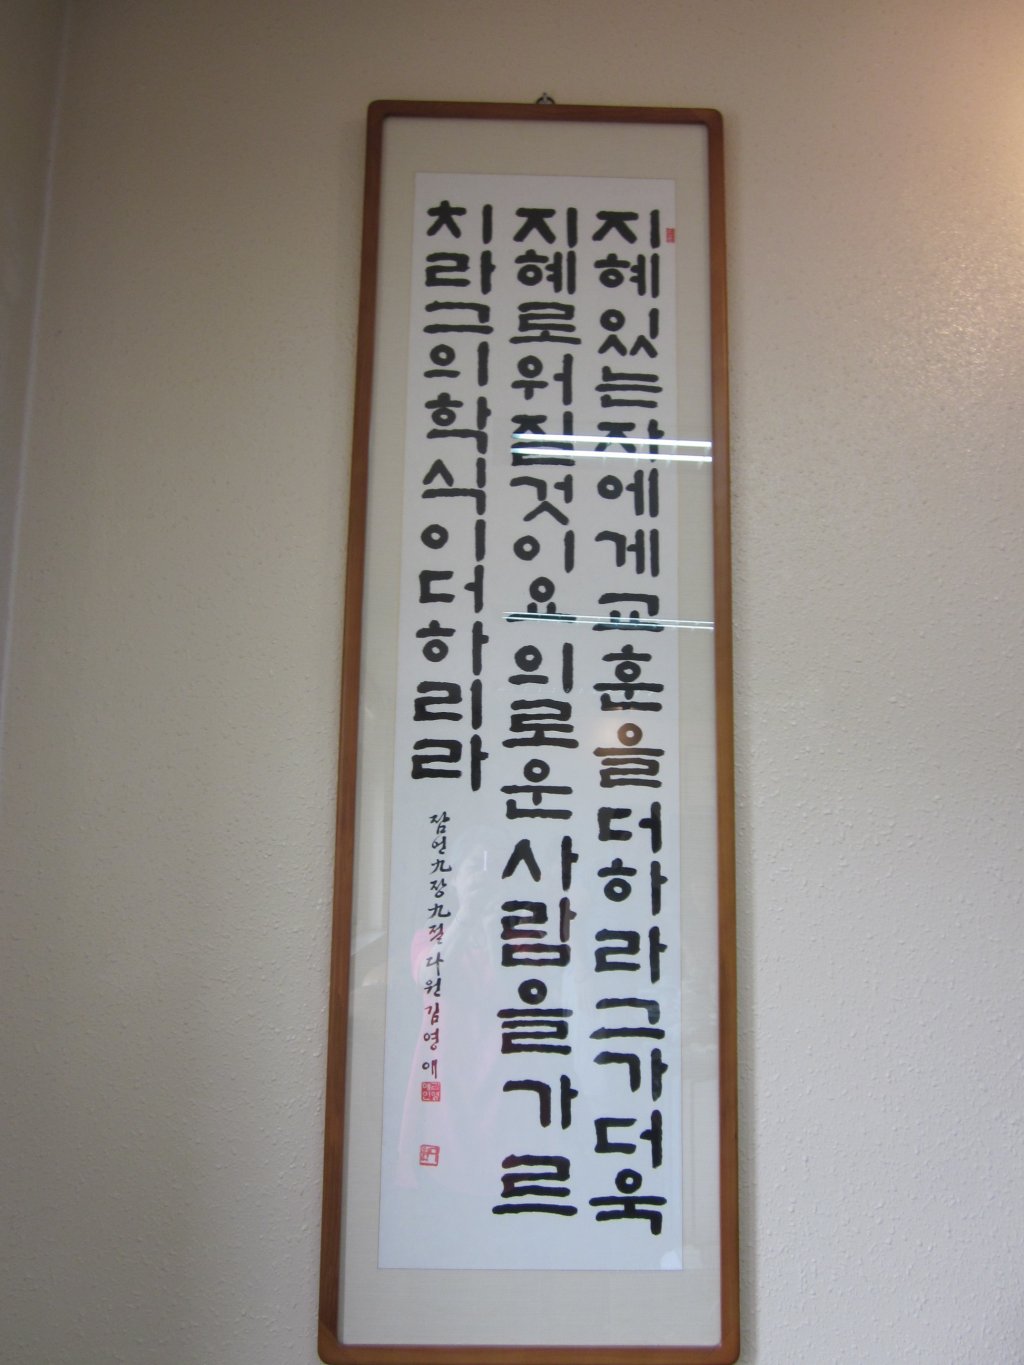 지혜있는자에게교훈을더하라그가더욱
지혜로워질것이요의로운사람을가르
치라그의학식이더하리라
잠언九장九절다원김영애